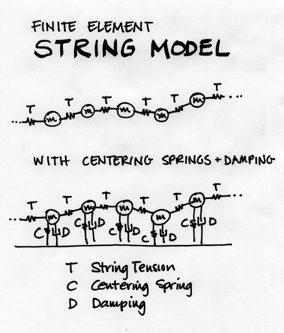 FINITE ELEMENT
STRING MODEL
T T T T T T
m m m m m
WITH CENTERING SPRINGS + DAMPING
T T T T T T
m m m m m
C D C D C D C D C D
T String Tension
C Centering Spring
D Damping